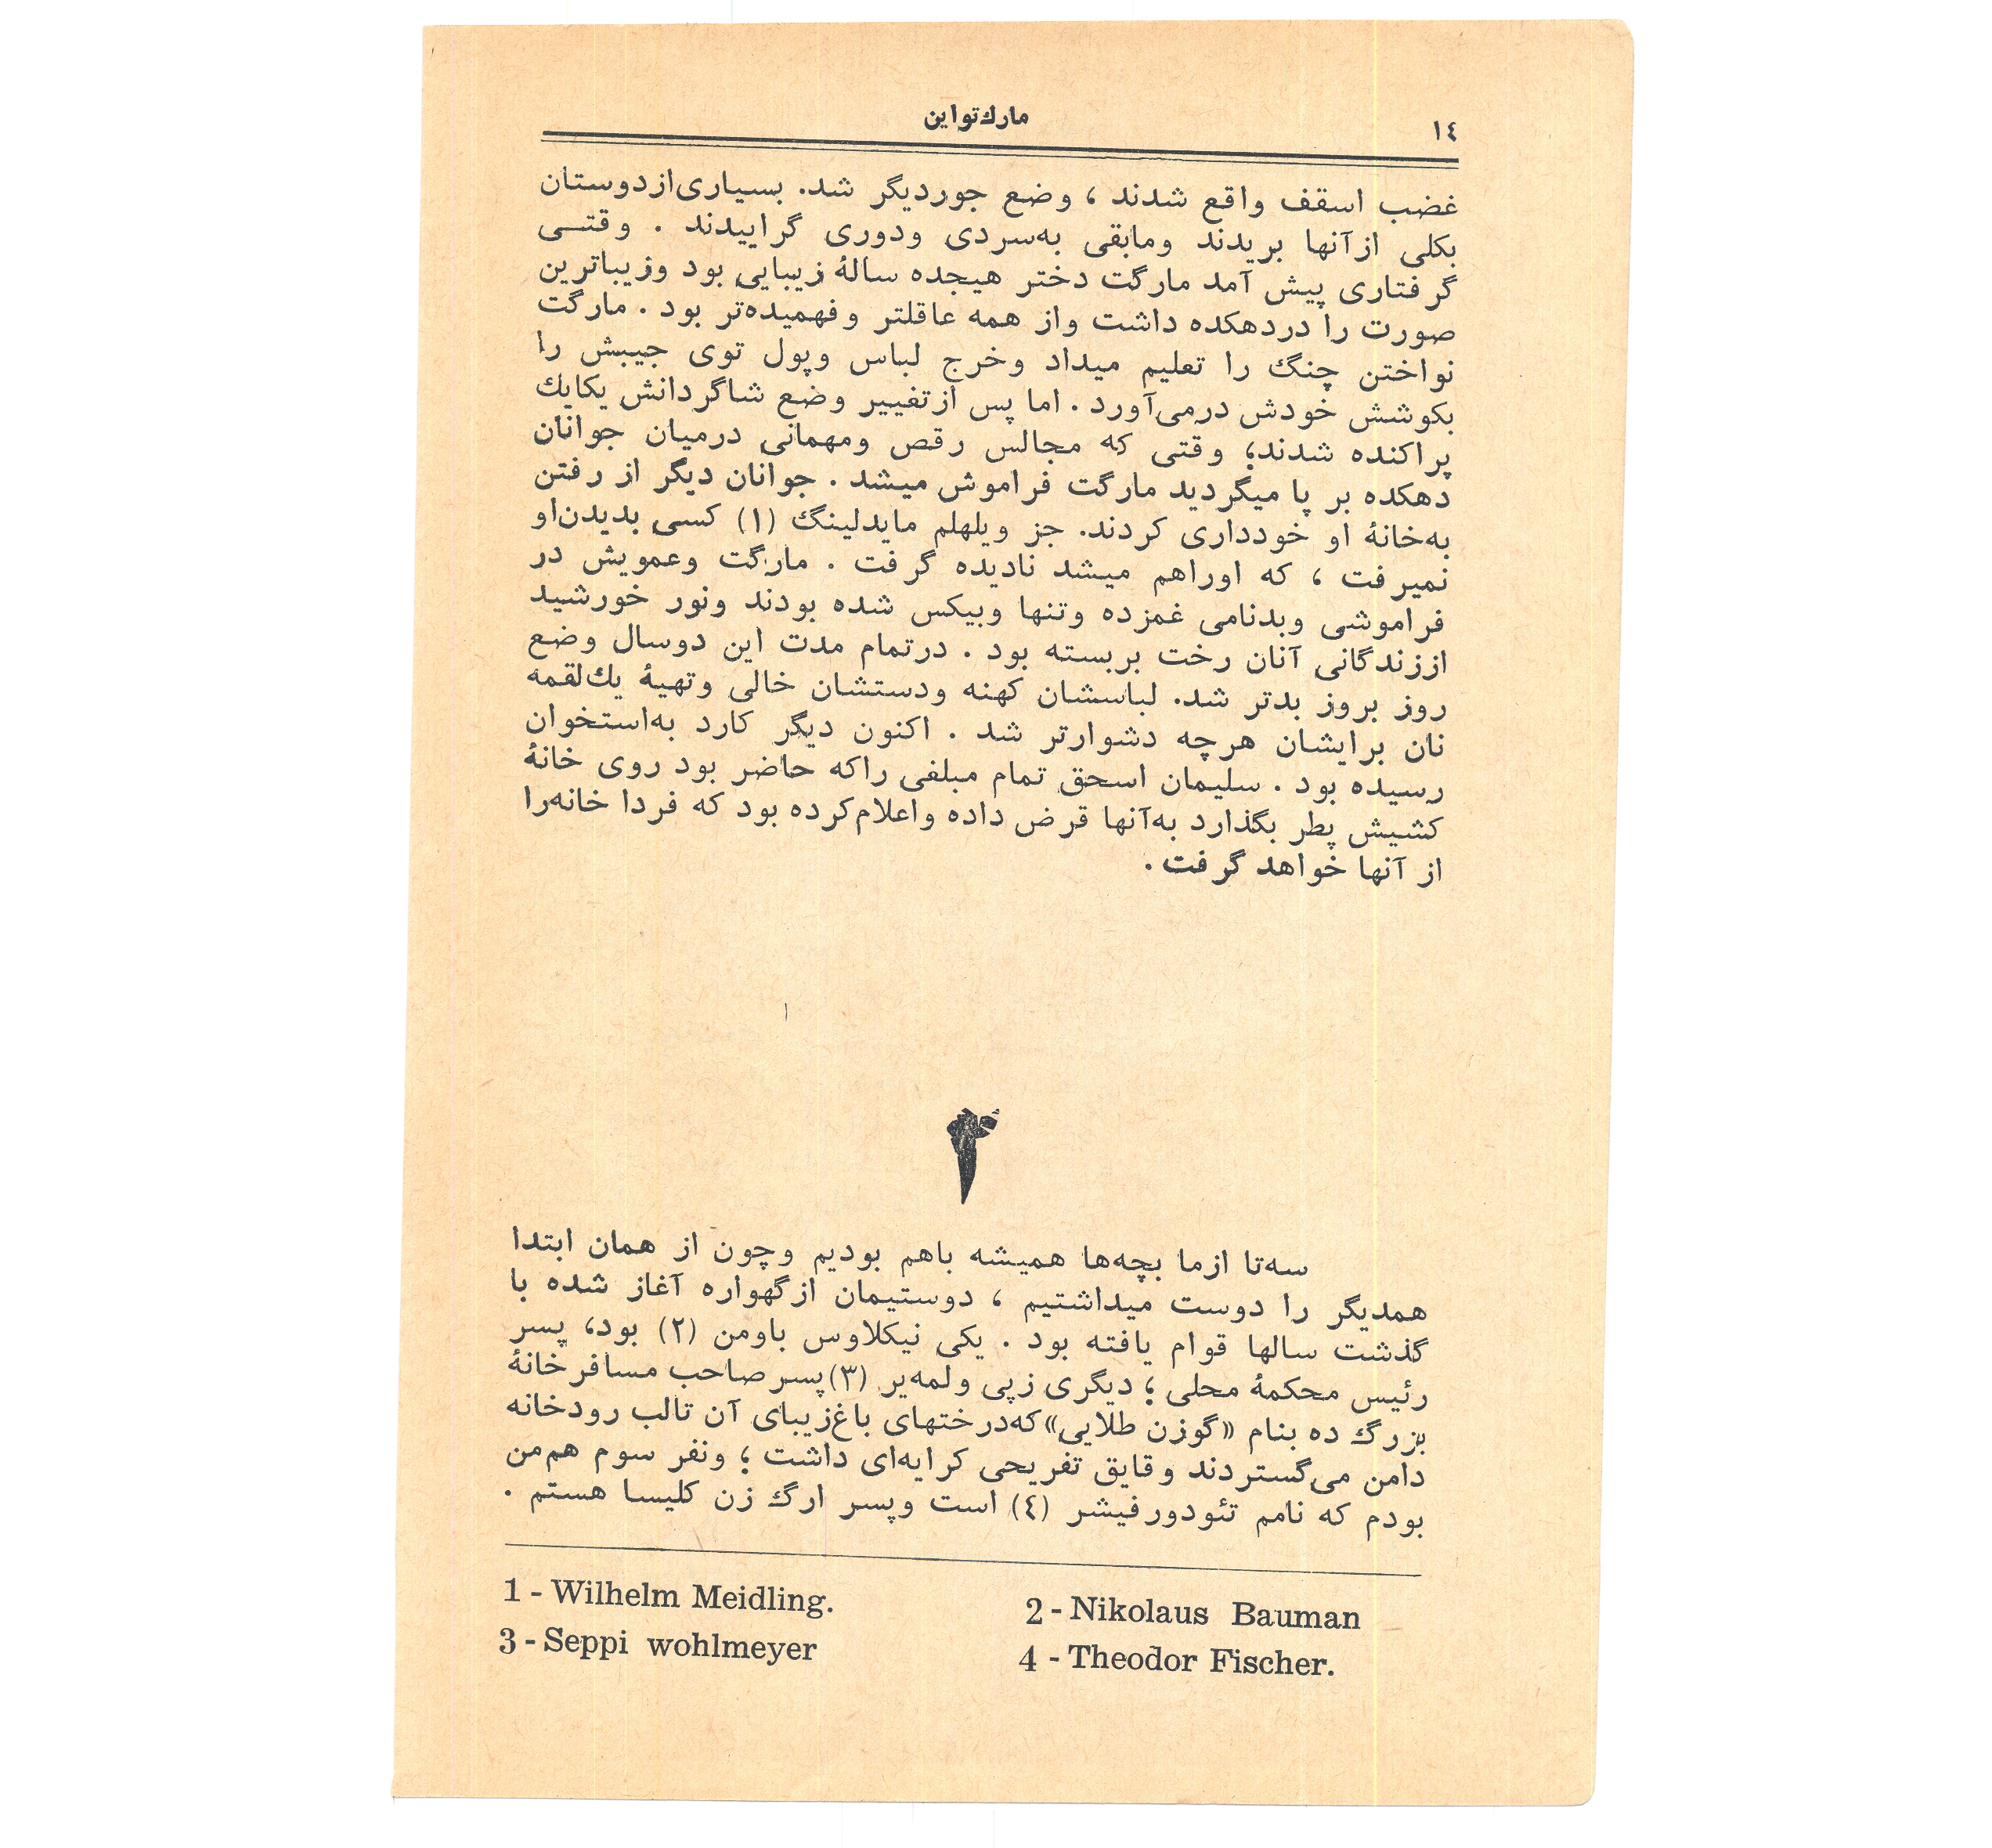 ١٤
مارك‌تواین
غضب اسقف واقع شدند ، وضع جوردیگر شد. بسیاری‌ازدوستان
بکلی ازآنها بریدند ومابقی به‌سردی ودوری گراییدند . وقتی
گرفتاری پیش آمد مارگت دختر هیجده سالهٔ زیبایی بود وزیباترین
صورت را دردهکده داشت واز همه عاقلتر وفهمیده‌تر بود . مارگت
نواختن چنگ را تعلیم میداد وخرج لباس وپول توی جیبش را
بکوشش خودش درمی‌آورد . اما پس ازتغییر وضع شاگردانش یکایك
پراکنده شدند؛ وقتی که مجالس رقص ومهمانی درمیان جوانان
دهکده بر پا میگردید مارگت فراموش میشد . جوانان دیگر از رفتن
به‌خانهٔ او خودداری کردند. جز ویلهلم مایدلینگ (١) کسی بدیدن‌او
نمیرفت ، که اوراهم میشد نادیده گرفت . مارگت وعمویش در
فراموشی وبدنامی غمزده وتنها وبیکس شده بودند ونور خورشید
اززندگانی آنان رخت بربسته بود . درتمام مدت این دوسال وضع
روز بروز بدتر شد. لباسشان کهنه ودستشان خالی وتهیهٔ یك‌لقمه
نان برایشان هرچه دشوارتر شد . اکنون دیگر کارد به‌استخوان
رسیده بود . سلیمان اسحق تمام مبلغی راکه حاضر بود روی خانهٔ
کشیش پطر بگذارد به‌آنها قرض داده واعلام‌کرده بود که فردا خانه‌را
از آنها خواهد گرفت .
۲
سه‌تا ازما بچه‌ها همیشه باهم بودیم وچون از همان ابتدا
همدیگر را دوست میداشتیم ، دوستیمان ازگهواره آغاز شده با
گذشت سالها قوام یافته بود . یکی نیکلاوس باومن (٢) بود، پسر
رئیس محکمهٔ محلی ؛ دیگری زپی ولمه‌یر (٣)پسرصاحب مسافرخانهٔ
بزرگ ده بنام «گوزن طلایی»که‌درختهای باغ‌زیبای آن تالب رودخانه
دامن می‌گستردند وقایق تفریحی کرایه‌ای داشت ؛ ونفر سوم هم‌من
بودم که نامم تئودورفیشر (٤) است وپسر ارگ زن کلیسا هستم .
1 - Wilhelm Meidling.
2 - Nikolaus Bauman
3 - Seppi wohlmeyer
4 - Theodor Fischer.